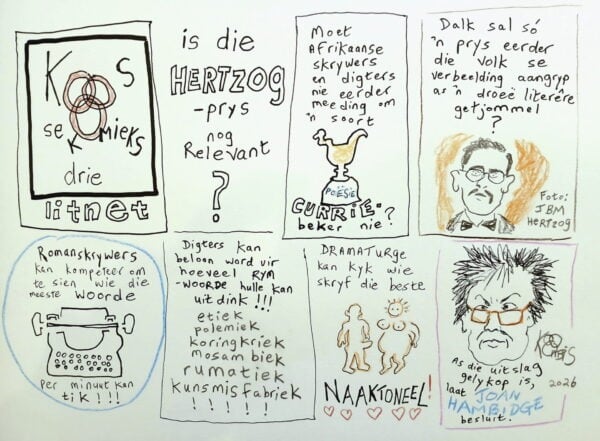 Kobus
se Komieks
drie
litnet
is die
HERTZOG
-prys
nog
Relevant
?
Moet
Afrikaanse
skrywers
en digters
nie eerder
meeding om
'n soort
POËSIE
CURRIE-
beker nie?
Dalk sal só
'n prys eerder
die volk se
verbeelding aangryp
as 'n droeë literêre
getjommel
?
Foto:
JBM
HERTZOG
Romanskrywers
kan kompeteer om
te sien wie die
meeste woorde
per minuut kan
tik!!!
Digters kan
beloon word vir
hoeveel RYM
-WOORDE hulle kan
uitdink!!!
etiek
polemiek
koringkriek
mosambiek
rumatiek
kunsmisfabriek
! ! ! ! ! !
DRAMATURGE
kan kyk wie
skryf die beste
NAAKTONEEL!
As die uitslag
gelykop is,
laat JOAN
HAMBIDGE
besluit.
2026